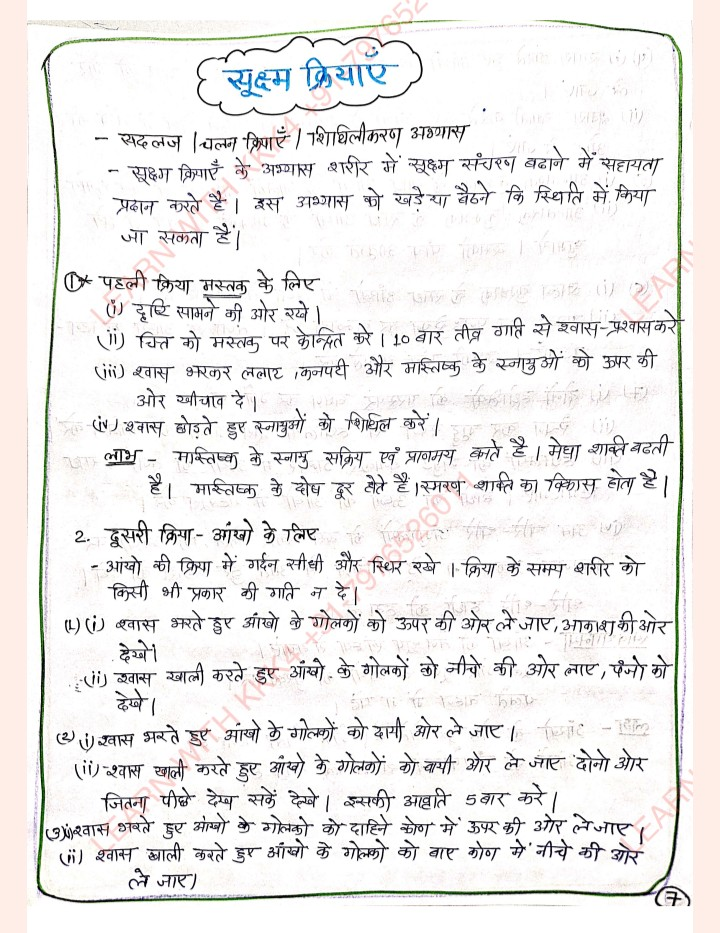 सूक्ष्म क्रियाएँ
- सदलज / चलन क्रियाएँ / शिथिलीकरण अभ्यास
- सूक्ष्म क्रियाएँ के अभ्यास शरीर में सूक्ष्म संचरण बढाने में सहायता
प्रदान करते है। इस अभ्यास को खडे या बैठने कि स्थिति में किया
जा सकता हैं।
①* पहली क्रिया मस्तक के लिए
(i) दृष्टि सामने की ओर रखे।
(ii) चित को मस्तक पर केन्द्रित करे। 10 बार तीव्र गति से श्वास-प्रश्वास करे
(iii) श्वास भरकर ललाट, कनपटी और मास्तिष्क के स्नायुओं को ऊपर की
ओर खीचाव दे।
(iv) श्वास छोड़ते हुए स्नायुओं को शिथिल करें।
लाभ - मास्तिष्क के स्नायु सक्रिय एवं प्राणमय बनते है। मेघा शक्ति बढती
है। मास्तिष्क के दोष दूर होते हैं। स्मरण शक्ति का विकास होता है।
2. दूसरी क्रिया - आंखो के लिए
- आंखो की क्रिया में गर्दन सीधी और स्थिर रखे। क्रिया के समय शरीर को
किसी भी प्रकार की गति न दे।
(1) (i) श्वास भरते हुए आंखो के गोलकों को ऊपर की ओर ले जाए, आकाश की ओर
देखे।
(ii) श्वास खाली करते हुए आंखो के गोलकों को नीचे की ओर लाए, पंजो को
देखे।
(2) (i) श्वास भरते हुए आंखो के गोलकों को दायी ओर ले जाए।
(ii) श्वास खाली करते हुए आंखो के गोलकों को बायी ओर ले जाए दोनो ओर
जितना पीछे देख सकें देखे। इसकी आवृति 5 बार करे।
(3) (i) श्वास भरते हुए आंखो के गोलको को दाहिने कोण में ऊपर की ओर ले जाए।
(ii) श्वास खाली करते हुए आंखो के गोलको को बाए कोण में नीचे की ओर
ले जाए।
7
LEARN WITH KKK4 +91-7976526011
LEARN
LEARN